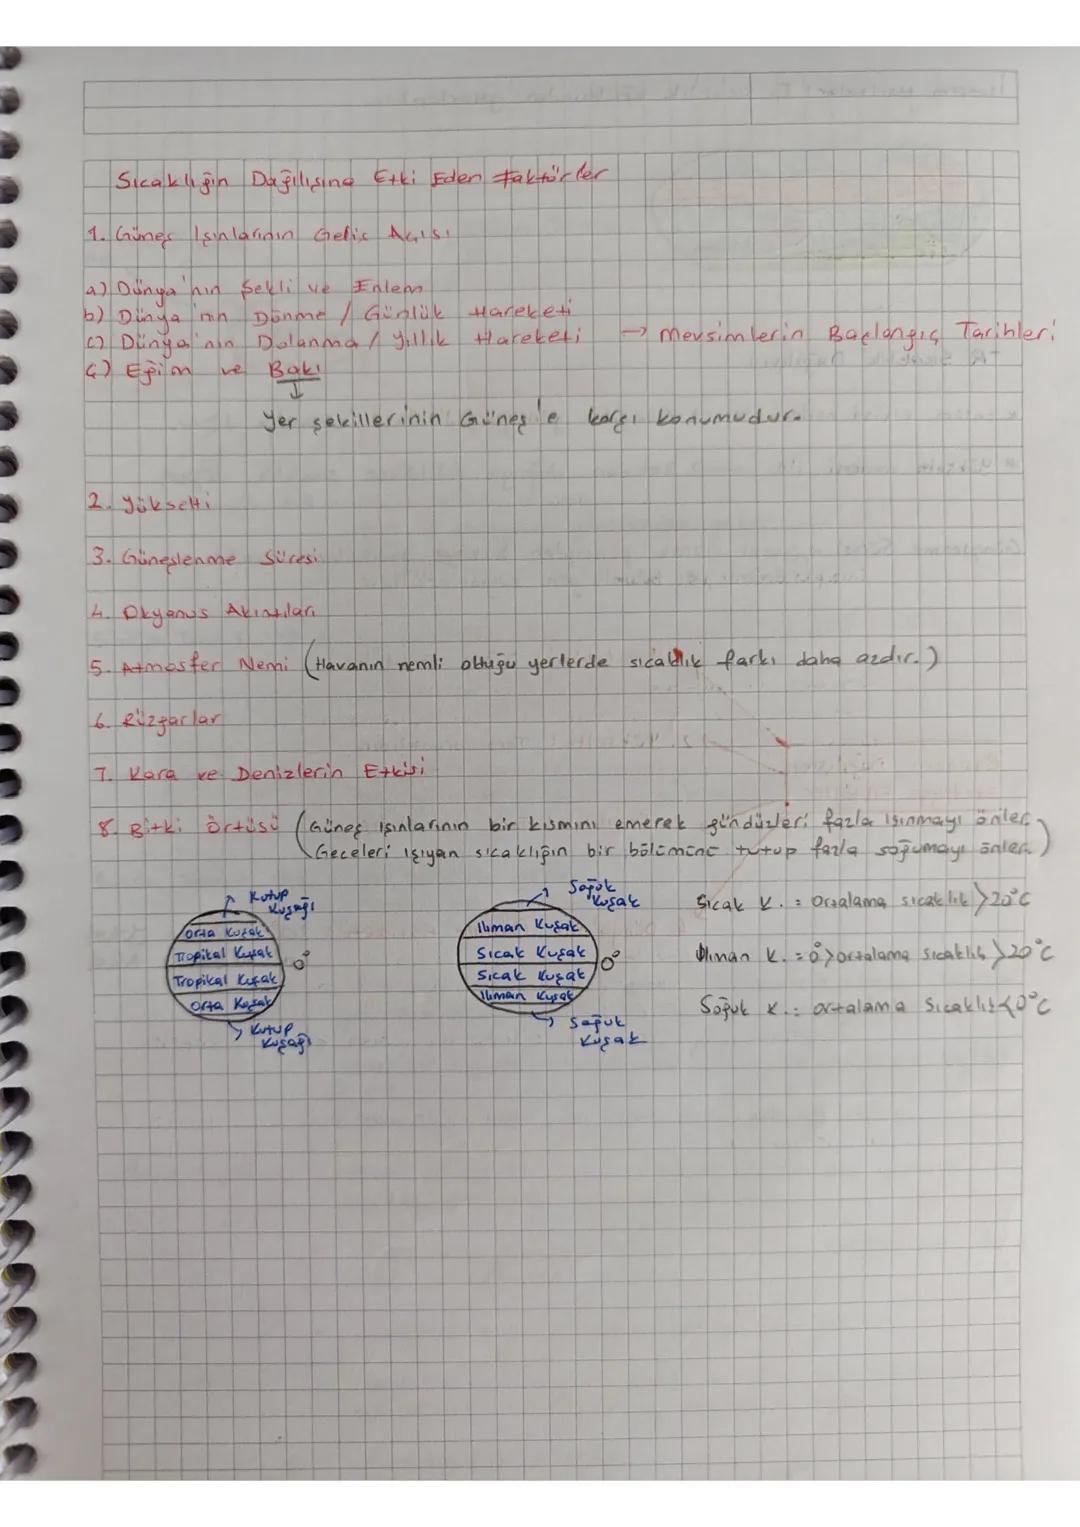 Sıcaklığın Dağılışına Etki Eden Faktörler
1. Güneş Işınlarının Geliş Açısı
a) Dünya'nın Şekli ve Enlem
b) Dünya'nın Dönme / Günlük Hareketi
c) Dünya'nın Dolanma / Yıllık Hareketi → Mevsimlerin Başlangıç Tarihleri
ç) Eğim ve Bakı
Yer şekillerinin Güneş'e karşı konumudur.
2. Yükselti
3. Güneşlenme Süresi
4. Okyanus Akıntıları
5. Atmosfer Nemi (Havanın nemli olduğu yerlerde sıcaklık farkı daha azdır.)
6. Rüzgarlar
7. Kara ve Denizlerin Etkisi
8. Bitki Örtüsü (Güneş ışınlarının bir kısmını emerek gündüzleri fazla ısınmayı önler.
Geceleri ışıyan sıcaklığın bir bölümünü tutup fazla soğumayı önler.)
Kutup
Kuşağı
Orta Kuşak
Tropikal Kuşak
0°
Tropikal Kuşak
Orta Kuşak
Kutup
Kuşağı
Soğuk
Kuşak
Ilıman Kuşak
Sıcak Kuşak
0°
Sıcak Kuşak
Ilıman Kuşak
Soğuk
Kuşak
Sıcak K. = Ortalama sıcaklık > 20°C
Ilıman K. = 0° > ortalama sıcaklık > 20°C
Soğuk K. = ortalama Sıcaklık < 0°C